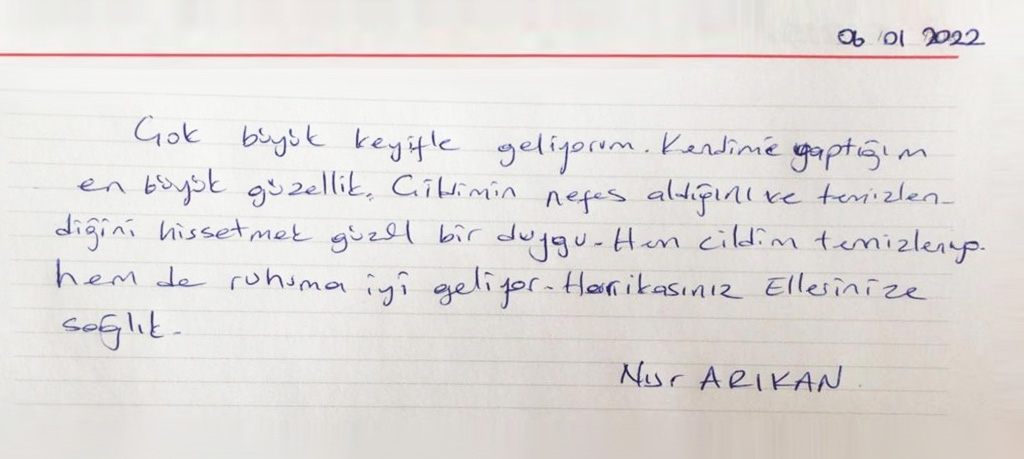 06/01 2022
Çok büyük keyifle geliyorum. Kendime yaptığım
en büyük güzellik. Cildimin nefes aldığını ve temizlen-
diğini hissetmek güzel bir duygu. Hem cildim temizleniyo.
hem de ruhuma iyi geliyor. Harikasınız Ellerinize
sağlık.
Nur ARIKAN